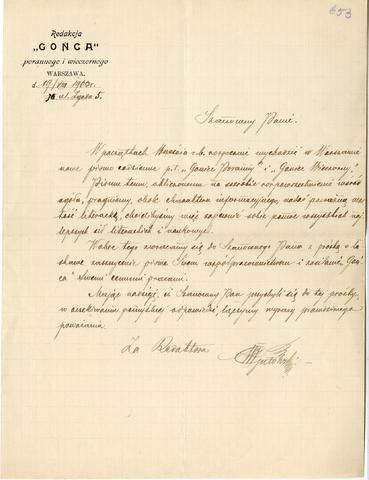 653
Redakcja
„GOŃCA"
porannego i wieczornego
WARSZAWA.
d. 19/VIII 1903 r.
ul. Zgoda 5.
Szanowny Panie.
W początkach Września r. b. rozpocznie wychodzić w Warszawie
nowe pismo codzienne p. t. „Goniec Poranny" i „Goniec Wieczorny".
Pismu temu, obliczonemu na szerokie rozpowszechnienie wśród
ogółu, pragniemy, obok charakteru informacyjnego, nadać poważną war-
tość literacką, chcielibyśmy więc zapewnić sobie pomoc wszystkich naj-
lepszych sił literackich i naukowych.
Wobec tego zwracamy się do Szanownego Pana z prośbą o ła-
skawe zaszczycenie pisma Swem współpracownictwem i zasilanie „Goń-
ca" Swemi cennemi pracami.
Mając nadzieję, iż Szanowny Pan przychyli się do tej prośby,
w oczekiwaniu pomyślnej odpowiedzi łączymy wyrazy prawdziwego
poważania.
Za Redaktora